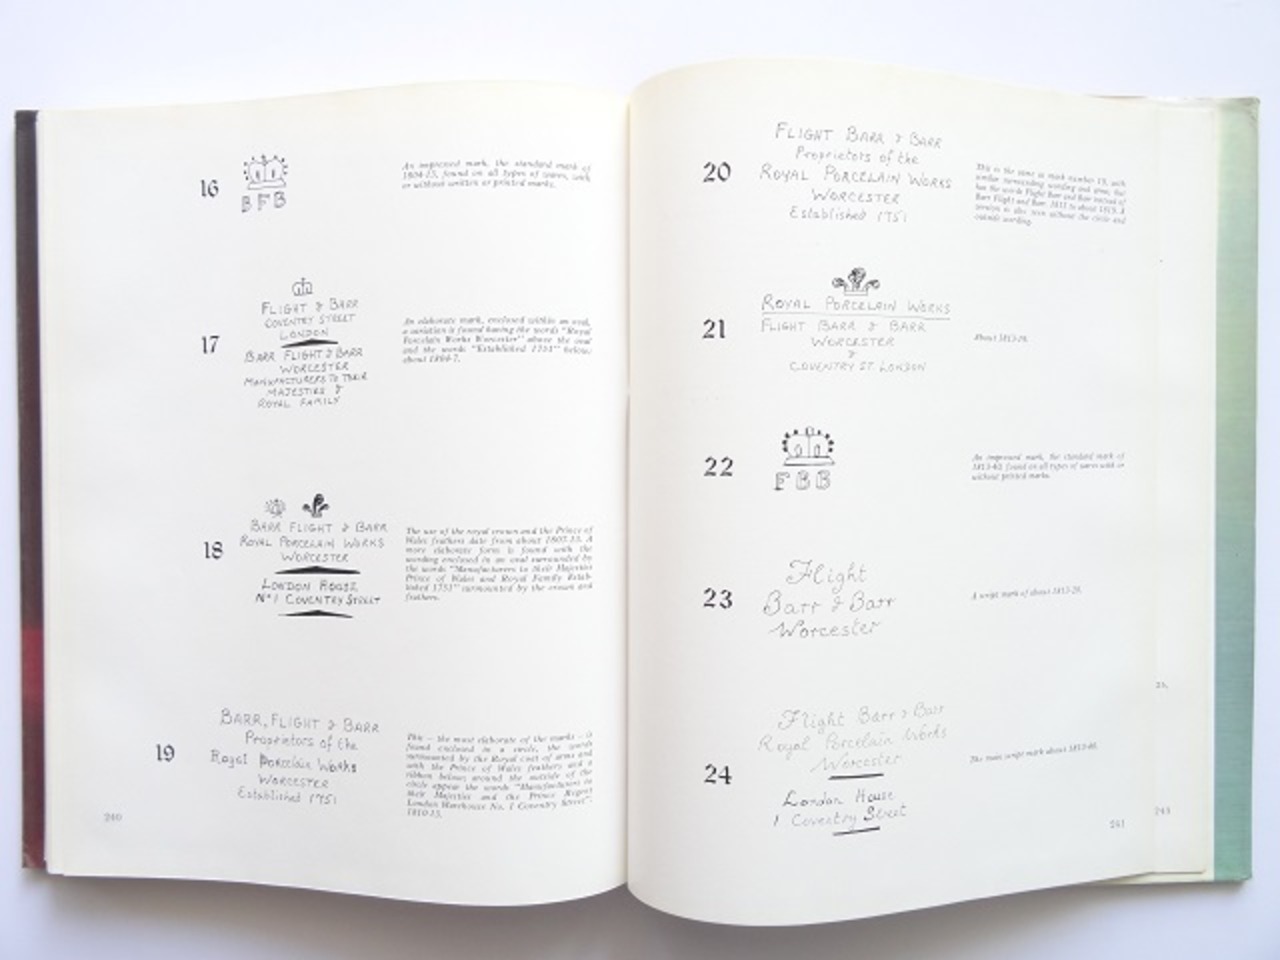 16
BFB
An impressed mark, the standard mark of
1804-13, found on all types of wares, with
or without written or printed marks.
17
FLIGHT & BARR
COVENTRY STREET
LONDON
BARR FLIGHT & BARR
WORCESTER
MANUFACTURERS TO THEIR
MAJESTIES &
ROYAL FAMILY
An elaborate mark, enclosed within an oval,
a variation is found having the words "Royal
Porcelain Works Worcester" above the oval
and the words "Established 1751" below;
about 1804-7.
18
BARR FLIGHT & BARR
ROYAL PORCELAIN WORKS
WORCESTER
LONDON HOUSE
No 1 COVENTRY STREET
The use of the royal crown and the Prince of
Wales feathers date from about 1807-13. A
more elaborate form is found with the
wording enclosed in an oval surrounded by
the words "Manufacturers to their Majesties
Prince of Wales and Royal Family Estab-
lished 1751" surmounted by the crown and
feathers.
19
BARR, FLIGHT & BARR
Proprietors of the
Royal Porcelain Works
WORCESTER
Established 1751
This – the most elaborate of the marks – is
found enclosed in a circle, the words
surmounted by the Royal coat of arms and
with the Prince of Wales feathers and a
ribbon below; around the outside of the
circle appear the words "Manufacturers to
their Majesties and the Prince Regent
London Warehouse No. 1 Coventry Street";
1810-13.
240
20
FLIGHT BARR & BARR
Proprietors of the
ROYAL PORCELAIN WORKS
WORCESTER
Established 1751
This is the same as mark number 19, with
similar surrounding wording and arms, but
has the words Flight Barr and Barr instead of
Barr Flight and Barr. 1813 to about 1819. A
version is also seen without the circle and
outside wording.
21
ROYAL PORCELAIN WORKS
FLIGHT BARR & BARR
WORCESTER
&
COVENTRY ST. LONDON
About 1813-
22
FBB
An impressed mark, the standard mark of
1813-40, found on all types of wares with or
without printed marks.
23
Flight
Barr & Barr
Worcester
A script mark of about 1813-20.
24
Flight Barr & Barr
Royal Porcelain Works
Worcester
London House
1 Coventry Street
The main script mark about 1813-40.
241
25.
243